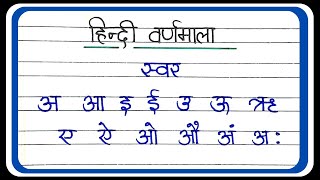 हिन्दी वर्णमाला
स्वर
अ आ इ ई उ ऊ ऋ
ए ऐ ओ औ अं अः